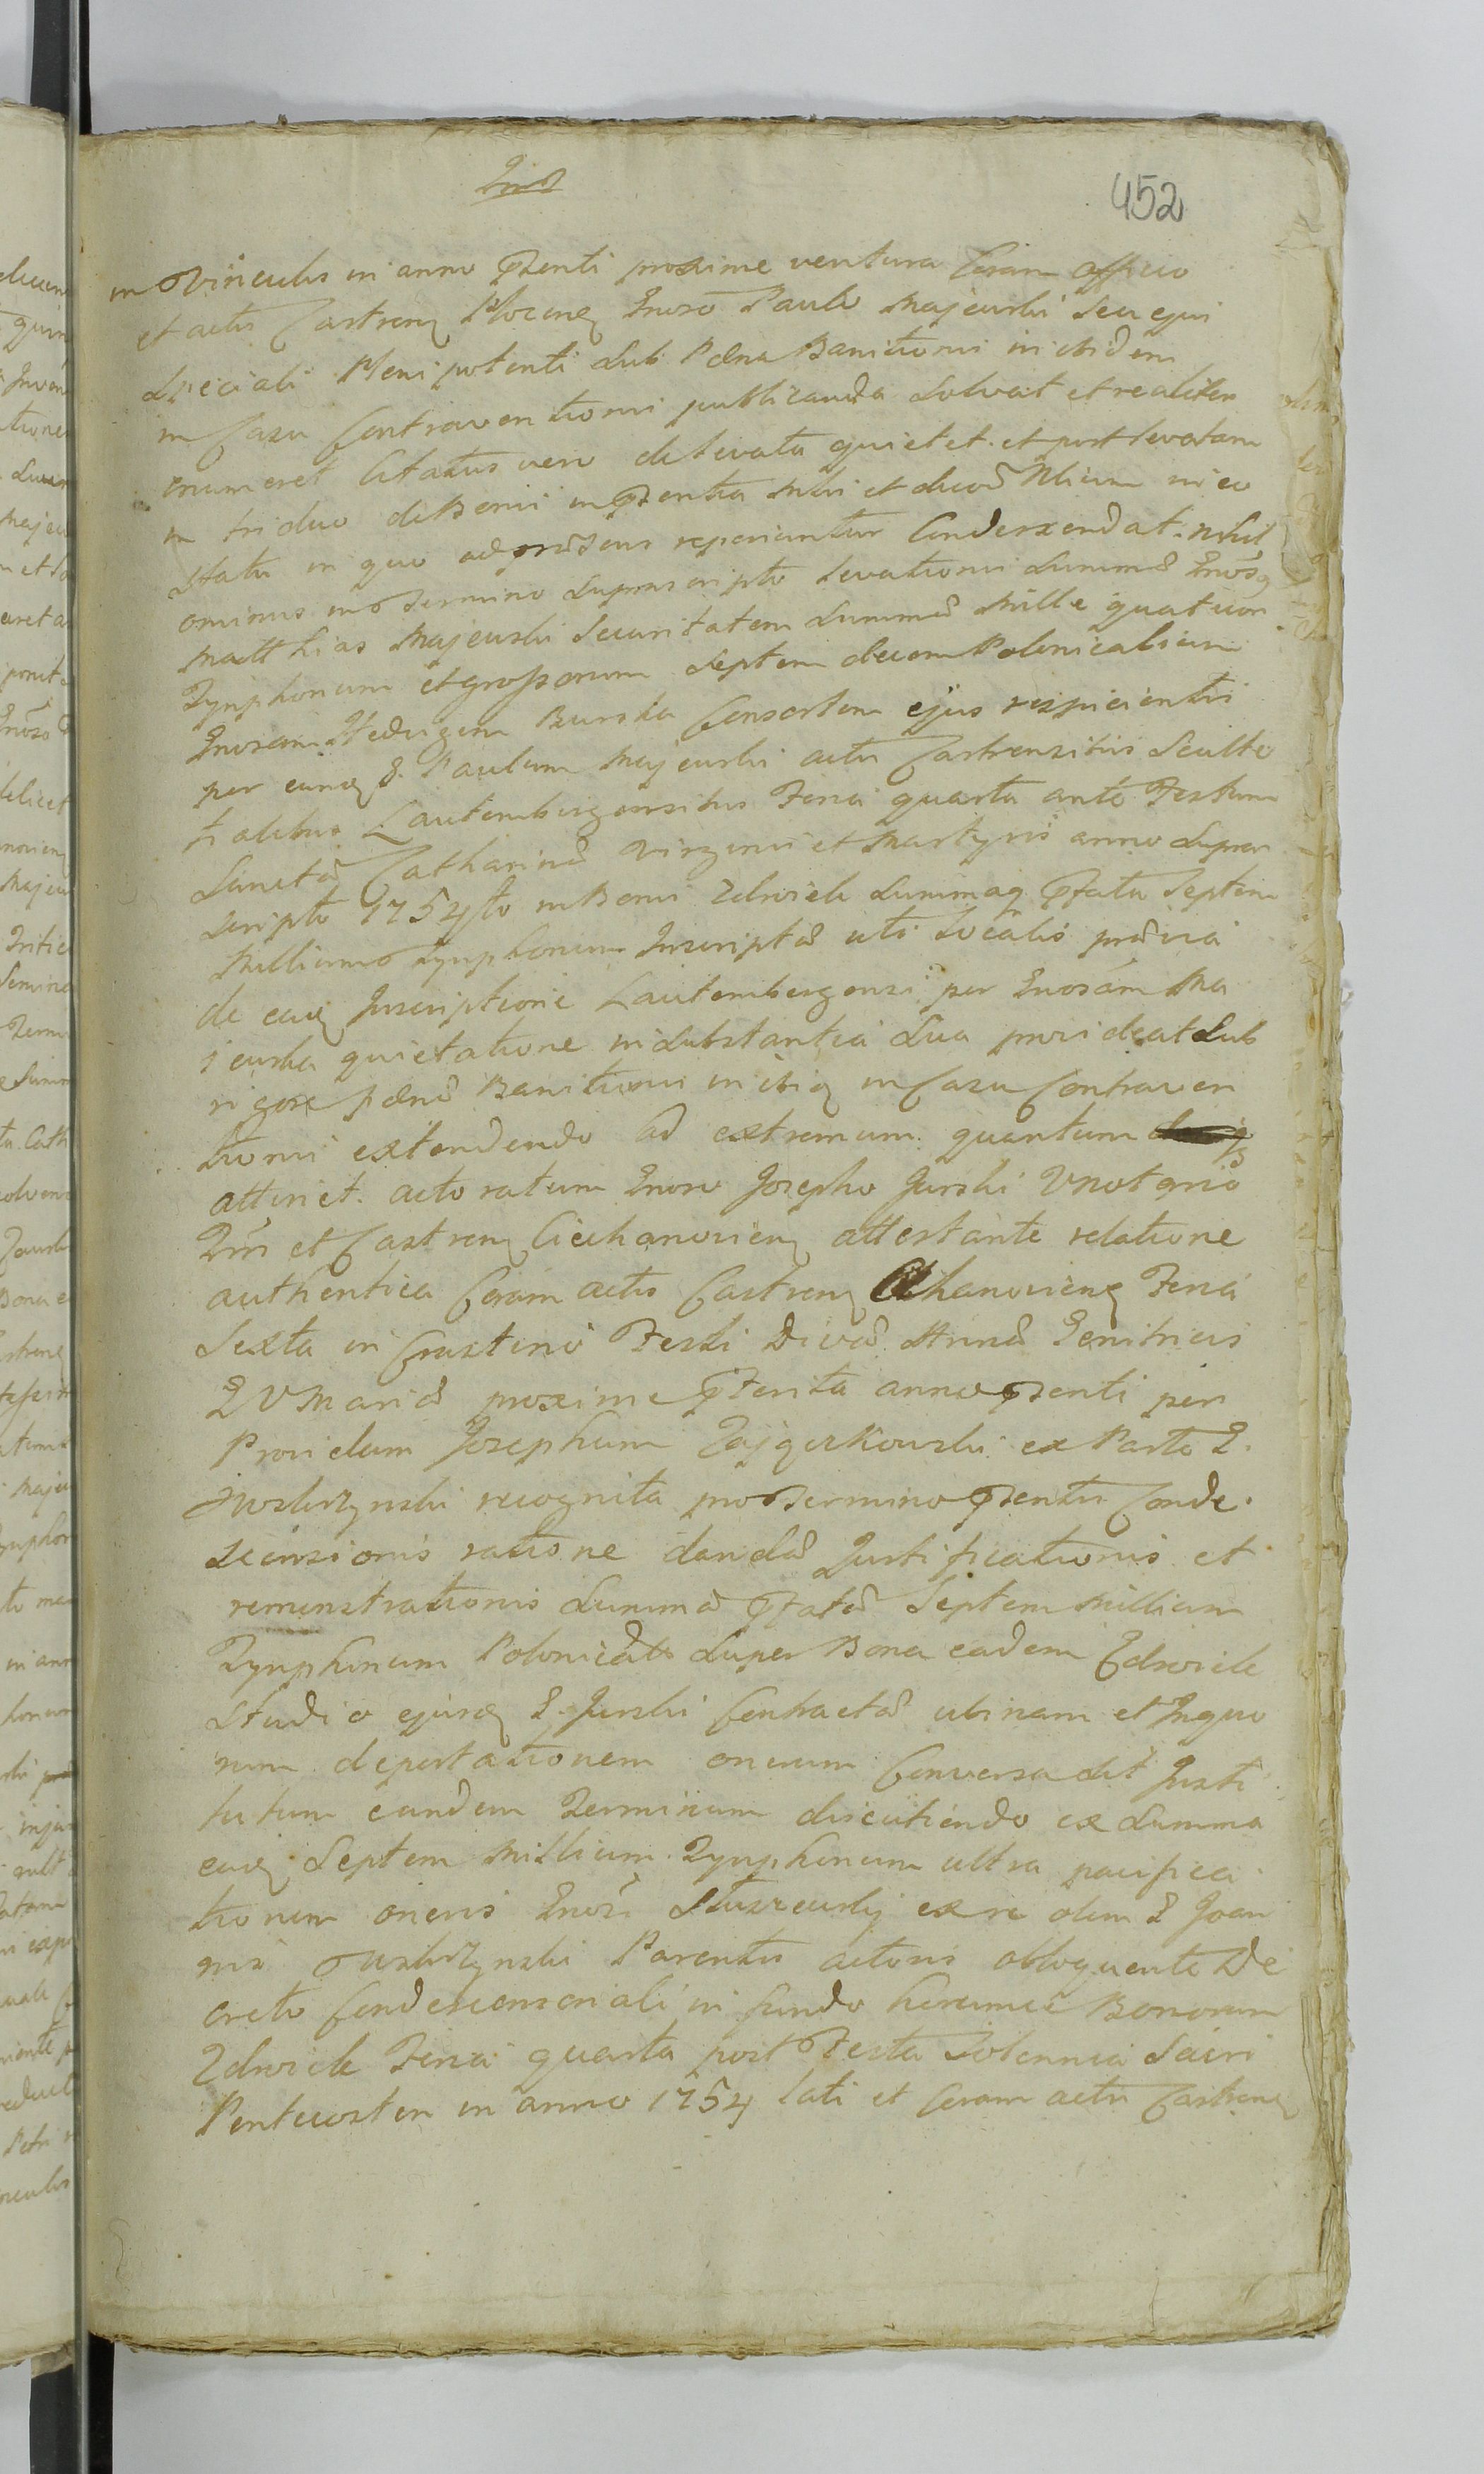 452
in vinculis in anno pſenti proxime ventura Coram officio
et actis Castren Plocen Gnroso Paulo Majewski seu ejus
speciali Plenipotenti sub Pæna Banitionis inibidem
in Casu Contraventionis publicanda solvat et realiter
enumeret Citatus vero de levata quietet. et post levatam
in triduo de Bonis in pſentia Mtri et duor Nlium in eo
statu in quo ad præsens reperiuntur Condescendat. nihil
ominus in Termino suprascripto levationis summæ Gnrosq
Matthias Majewski securitatem summæ Mille quatuor
Tynphonum et grossorum septem decem Polonicalium
Gnrosam Hedvigem Burska Consortem ejus respicientis
per eunq G. Paulum Majewski actis Castrensibus Sculte
tialibus Lautembergensibus Feria quarta ante Festum
Sanctæ Catharinæ Virginis et Martyris anno supra
scripto 1754to in Bonis Zdroiele summaq pſata Septem
Millium Tynphonum Inscriptæ uti localis prævia
de eaq Inscriptione Lautembergensi per Gnrosam Ma
jewska quietatione in substantia sua provideat sub
rigore pænæ Banitionis inibiq in Casu Contraven
tionis extendendo ad extremum quantum
attinet. acto ratum Gnroso Josepho Jurski Vnotario
Trri et Castren Ciechanovien attestante relatione
authentica Coram actis Castren Cichanovien Feria
Sexta in Crastino Festi Divæ Annæ Genitricis
B V Mariæ proxime pſterita anno pſenti per
Providum Josephum Zajączkowski ex Parte G.
pro Termino pſentis Conde
scensionis ratione dandæ Justificationis et
remonstrationis summæ pſatæ Septem Millium
Tynphonum Polonical super Bona eadem Zdroiele
studio ejusq G. Jurski Contractæ ubinam et In quo
rum deportationem onerum Conversa sit Insti
tutum eundem Terminum discutiendo ex summa
eaq Septem Millium Tynphonum ultra pacifica
tionem oneris Gnrosi ex re olim G Joan
nis Parentis actoris obloquente De
creto Condescensoriali in fundo horumce Bonorum
Zdroiele Feria quarta post Festa Solennia Sacri
Pentecosten in anno 1754 lati et Coram actis Castren